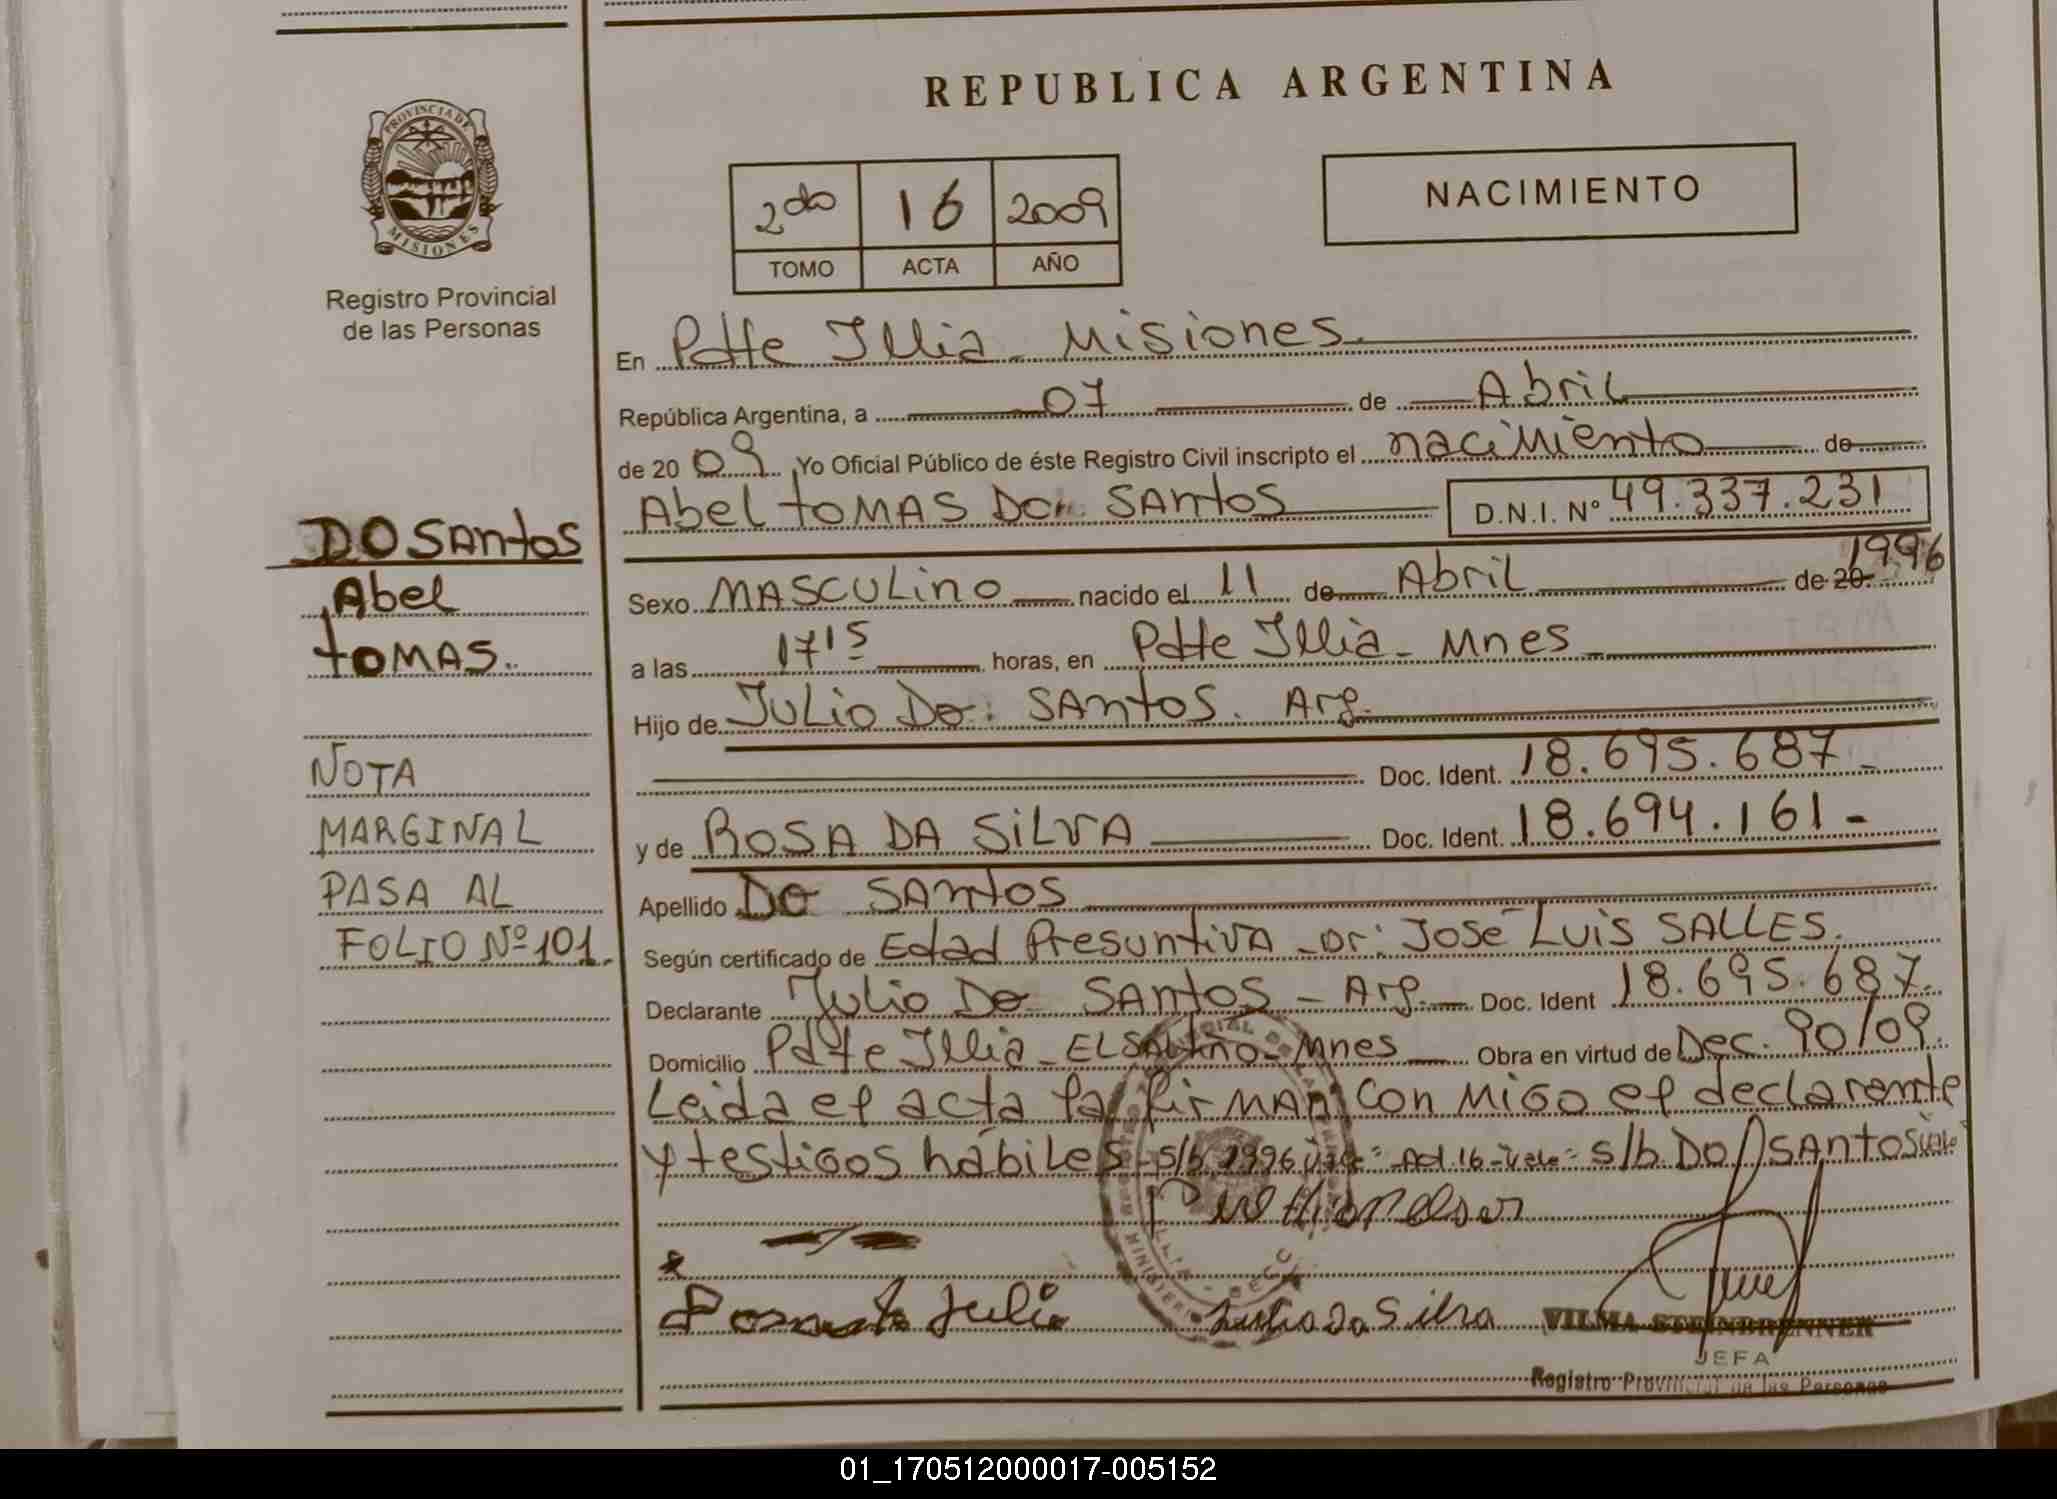 PROVINCIA DE
MISIONES
Registro Provincial
de las Personas
DO SANTOS
Abel
TOMAS.
NOTA
MARGINAL
PASA AL
FOLIO Nº 101.
REPUBLICA ARGENTINA
2do 16 2009
TOMO ACTA AÑO
NACIMIENTO
En Pdte Illia - Misiones.
República Argentina, a 07 de Abril
de 20 09 Yo Oficial Público de éste Registro Civil inscripto el nacimiento de
Abel TOMAS Do SANTOS D.N.I. Nº 49.337.231
Sexo MASCULINO nacido el 11 de Abril de 20 1996
a las 17 15 horas, en Pdte Illia - Mnes
Hijo de JULIO Do SANTOS. Arg.
Doc. Ident. 18.695.687 -
y de ROSA DA SILVA Doc. Ident. 18.694.161 -
Apellido DO SANTOS
Según certificado de Edad Presuntiva - Dr: José Luis SALLES.
Declarante Julio Do SANTOS - Arg. Doc. Ident 18.695.687.
Domicilio Pdte Illia - EL SALTIÑO - Mnes Obra en virtud de Dec. 90/09.
Leida el acta la firman con migo el declarante
y testigos hábiles - s/b 1996 Vale = Act. 16 - Vale = s/b. DO SANTOS Vale
Julio
Da Silva
VILMA STEINBRENNER
JEFA
Registro Provincial de las Personas
01_170512000017-005152